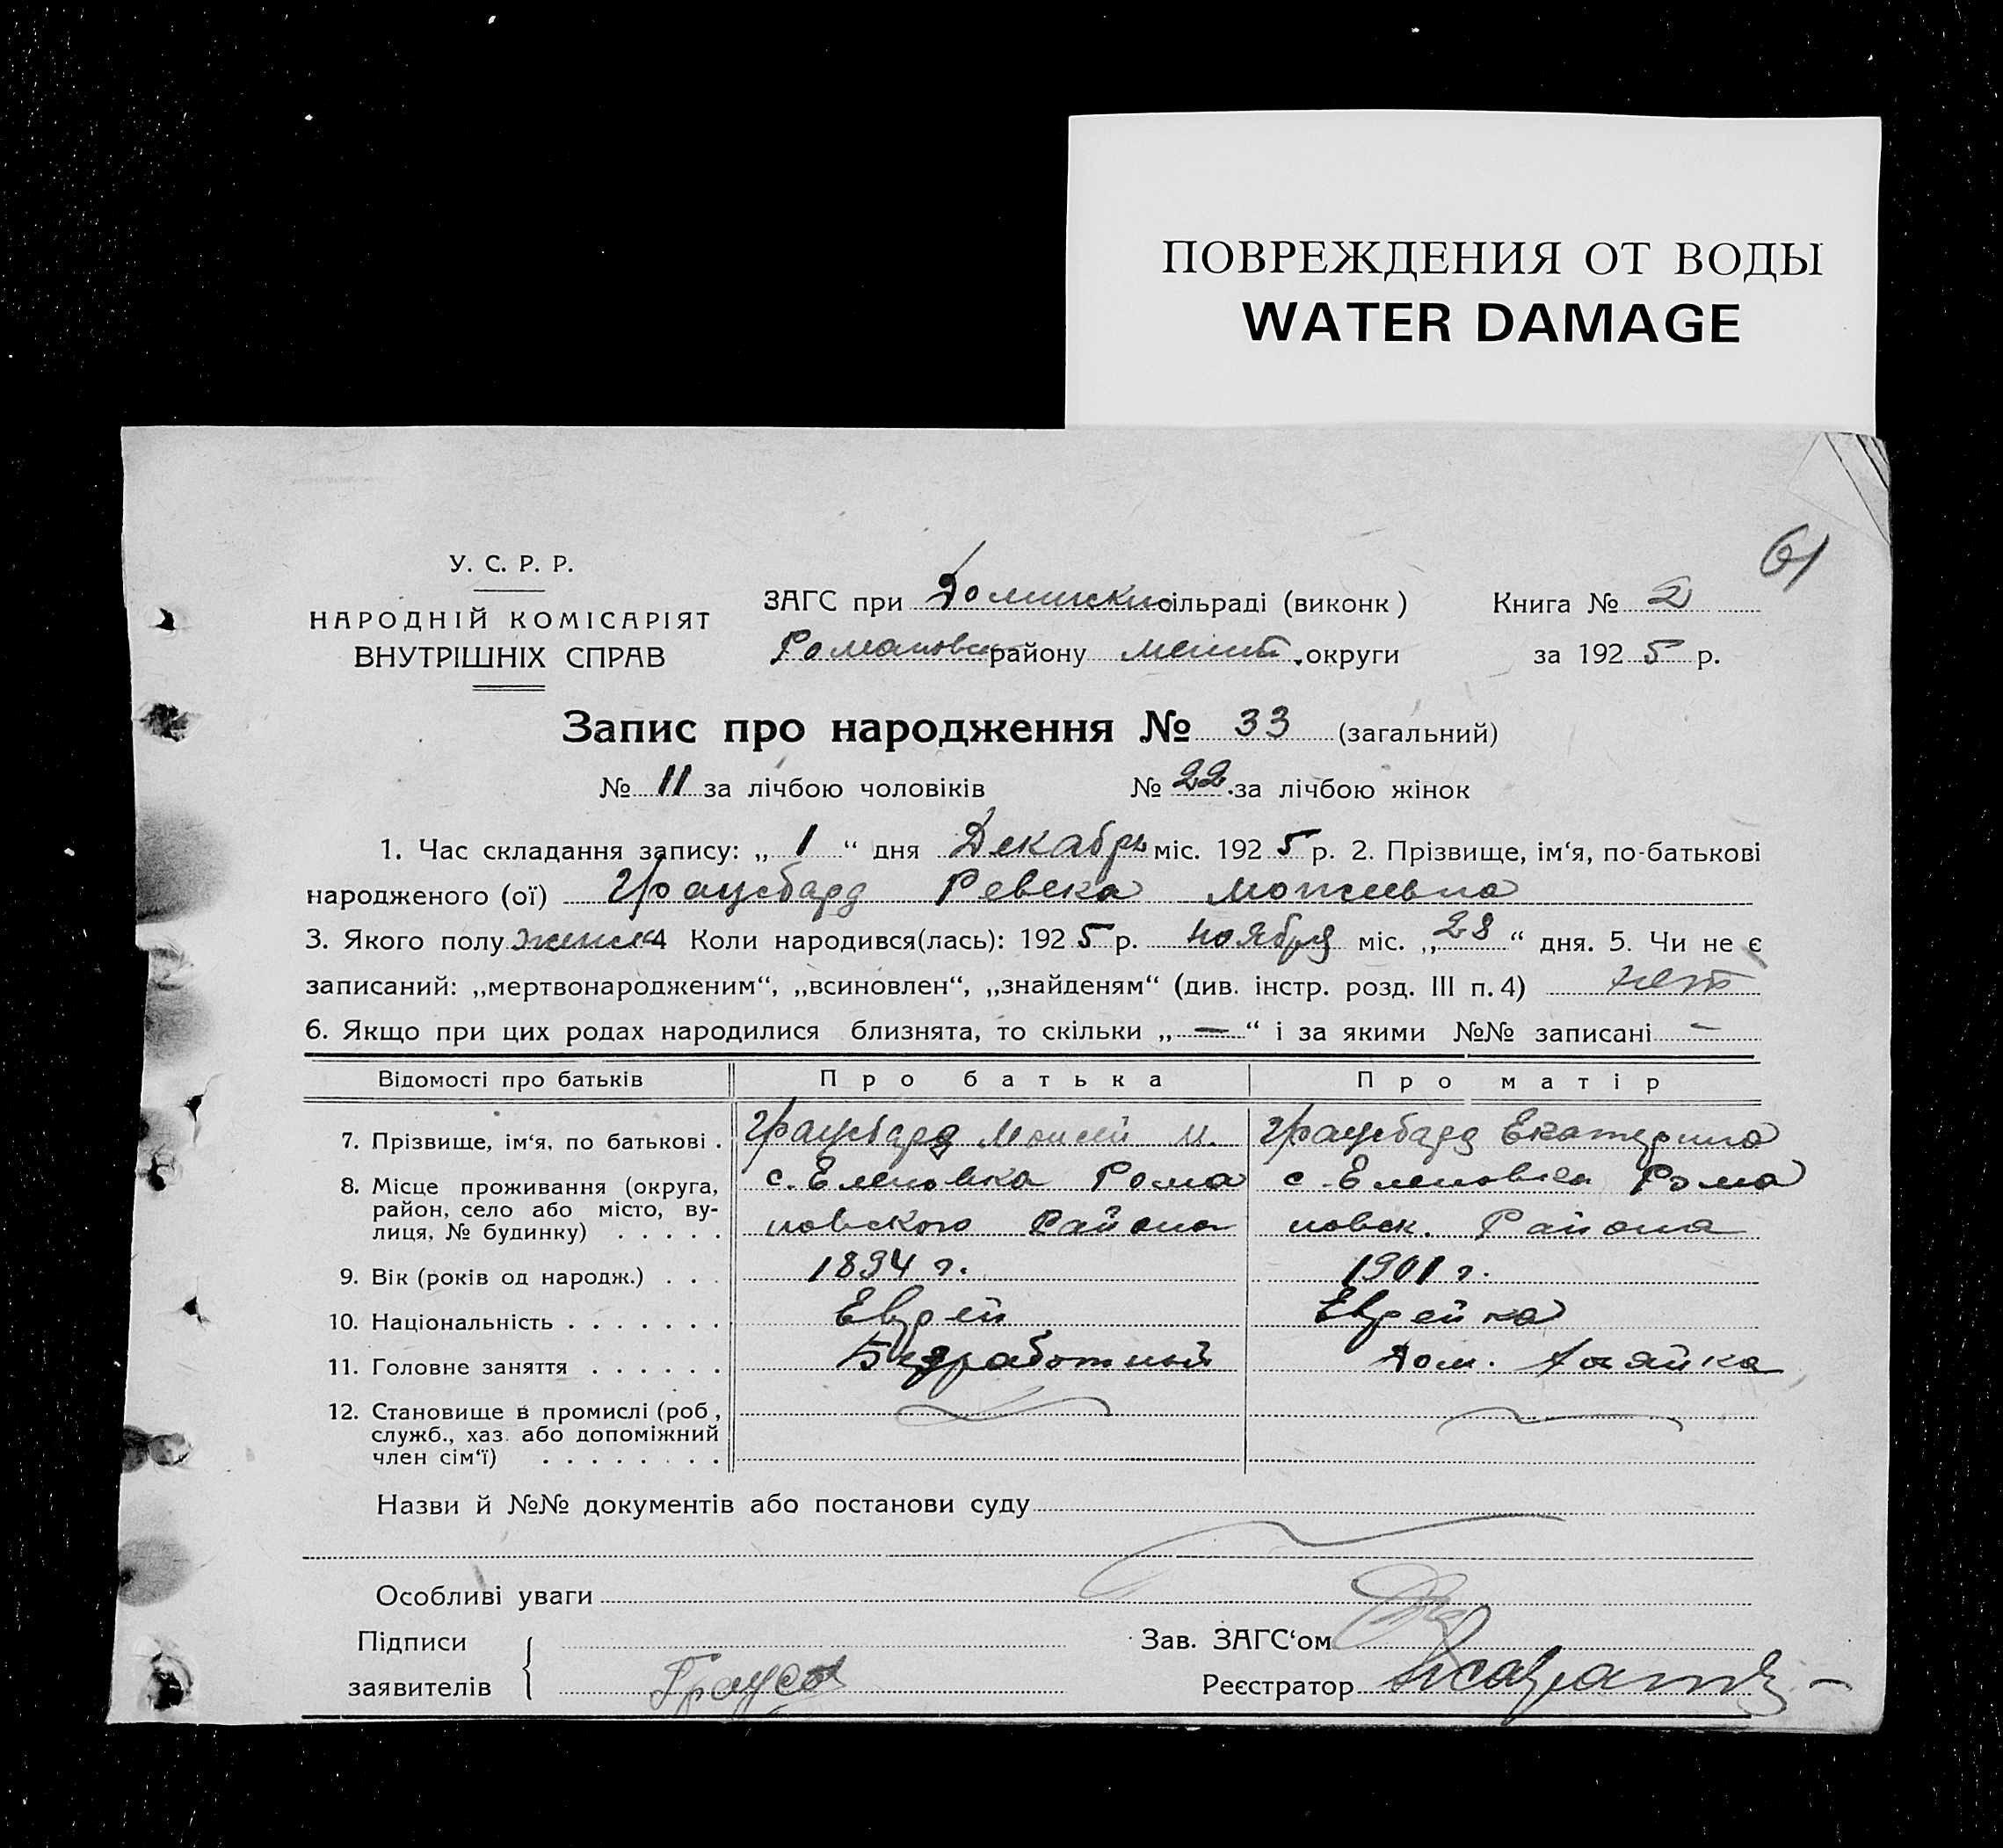 ПОВРЕЖДЕНИЯ ОТ ВОДЫ
WATER DAMAGE
61
У. С. Р. Р.
НАРОДНІЙ КОМІСАРІЯТ
ВНУТРІШНІХ СПРАВ
ЗАГС при сільраді (виконк)
Романовск району Мелит. округи
Книга № 2
за 1925 р.
Запис про народження № 33 (загальний)
№ 11 за лічбою чоловіків № 22 за лічбою жінок
1. Час складання запису: „ 1 “ дня Декабрь міс. 1925 р. 2. Прізвище, ім‘я, по-батькові
народженого (ої) Граусбард Ревека
3. Якого полу женск 4 Коли народився(лась): 1925 р. ноября міс. „28“ дня. 5. Чи не є
записаний: „мертвонародженим“, „всиновлен“, „знайденям“ (див. інстр. розд. III п. 4) нет
6. Якщо при цих родах народилися близнята, то скільки „—“ і за якими №№ записані —
Відомості про батьків Про батька Про матір
7. Прізвище, ім‘я, по батькові . Граусбард Моисей М. Граусбард Екатерина
8. Місце проживання (округа, район, село або місто, вулиця, № будинку) . . . . . с. Еленовка Романовского Района с. Еленовка Романовск. Района
9. Вік (років од народж.) . . . 1894 г. 1901 г.
10. Національність . . . . . . . Еврей Еврейка
11. Головне заняття . . . . . . Безработный Дом. хазяйка
12. Становище в промислі (роб., служб., хаз. або допоміжний член сім‘ї) . . . . . . . .
Назви й №№ документів або постанови суду
Особливі уваги
Підписи
заявителів
Зав. ЗАГС‘ом
Реєстратор